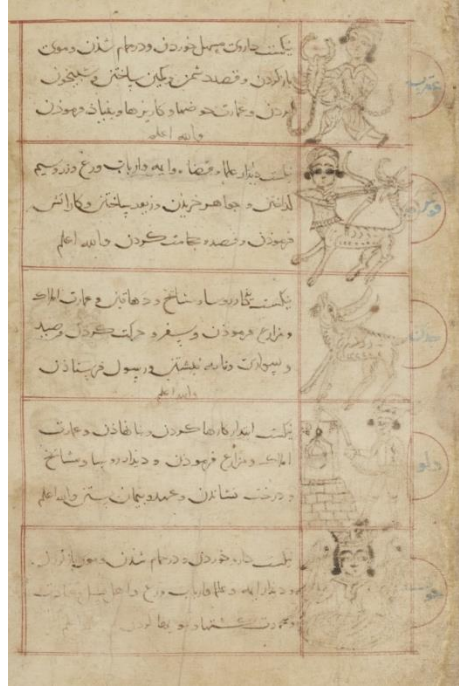 نیکست داروی مسهل خوردن و در حمام شدن و موی
باز کردن و قصد دشمن و کمین ساختن و شبیخون
کردن و عمارت حوضها و کاریزها و بنیاد فرمودن
والله اعلم
عقرب
نیکست دیدار علما و قضاة و ایمه و ارباب ورع و زر و سیم
و جواهر خریدن و ساختن و کار آتش
فرمودن و فصد و حجامت کردن والله اعلم
نیکست دیدار رؤسا و مشایخ و دهاقین و عمارت املاک
و مزارع فرمودن و سفر و حرکت کردن و صید
و سواری و نامه نبشتن و رسول فرستاذن
والله اعلم
جدی
نیکست ابتداء کارها کردن و بنا نهاذن و عمارت
املاک و مزارع فرمودن و دیدار رؤسا و مشایخ
و درخت نشاندن و عهد و پیمان بستن والله اعلم
دلو
نیکست دارو خوردن و در حمام شدن و موی باز کردن
و دیدار ایمه و علما و ارباب ورع و
و عمارت
حوت